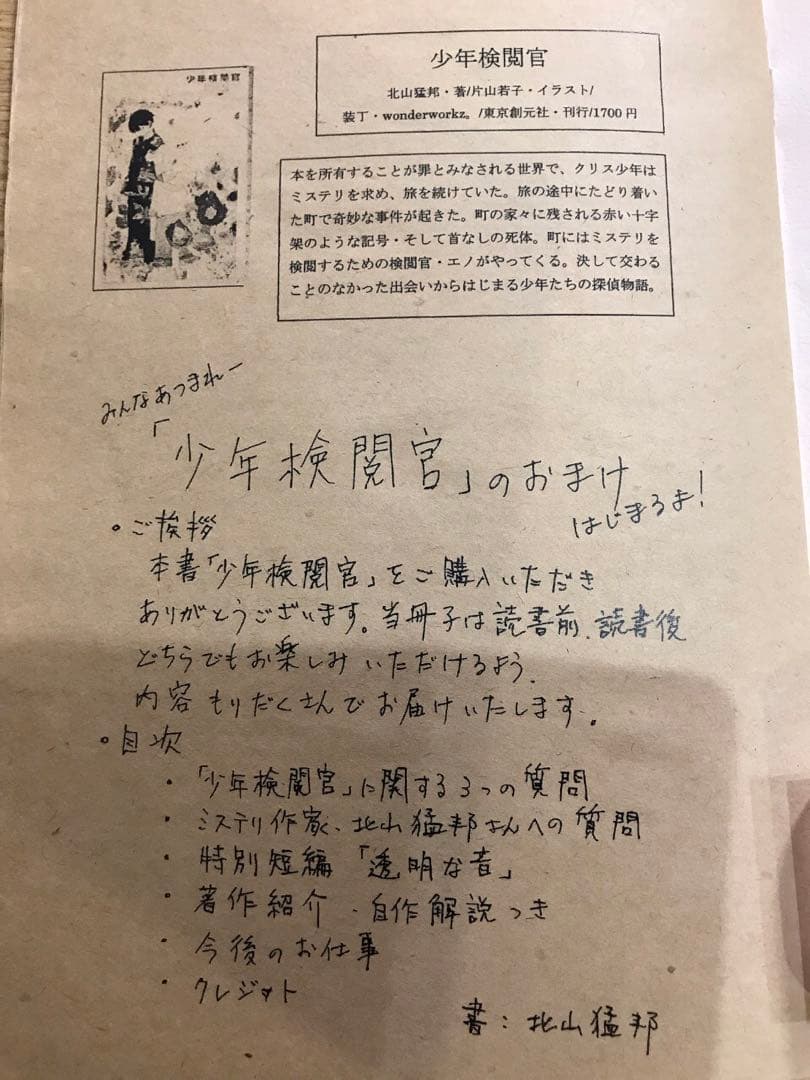 少年検閲官
少年検閲官
北山猛邦・著/片山若子・イラスト/
装丁・wonderworkz。/東京創元社・刊行/1700円
本を所有することが罪とみなされる世界で、クリス少年は
ミステリを求め、旅を続けていた。旅の途中にたどり着い
た町で奇妙な事件が起きた。町の家々に残される赤い十字
架のような記号・そして首なしの死体。町にはミステリを
検閲するための検閲官・エノがやってくる。決して交わる
ことのなかった出会いからはじまる少年たちの探偵物語。
みんなあつまれー
「少年検閲官」のおまけ
はじまるよ！
・ご挨拶
本書「少年検閲官」をご購入いただき
ありがとうございます。当冊子は読書前、読書後
どちらでもお楽しみいただけるよう、
内容もりだくさんでお届けいたします。
・目次
・「少年検閲官」に関する3つの質問
・ミステリ作家、北山猛邦さんへの質問
・特別短編「透明な音」
・著作紹介、自作解説つき
・今後のお仕事
・クレジット
書：北山猛邦